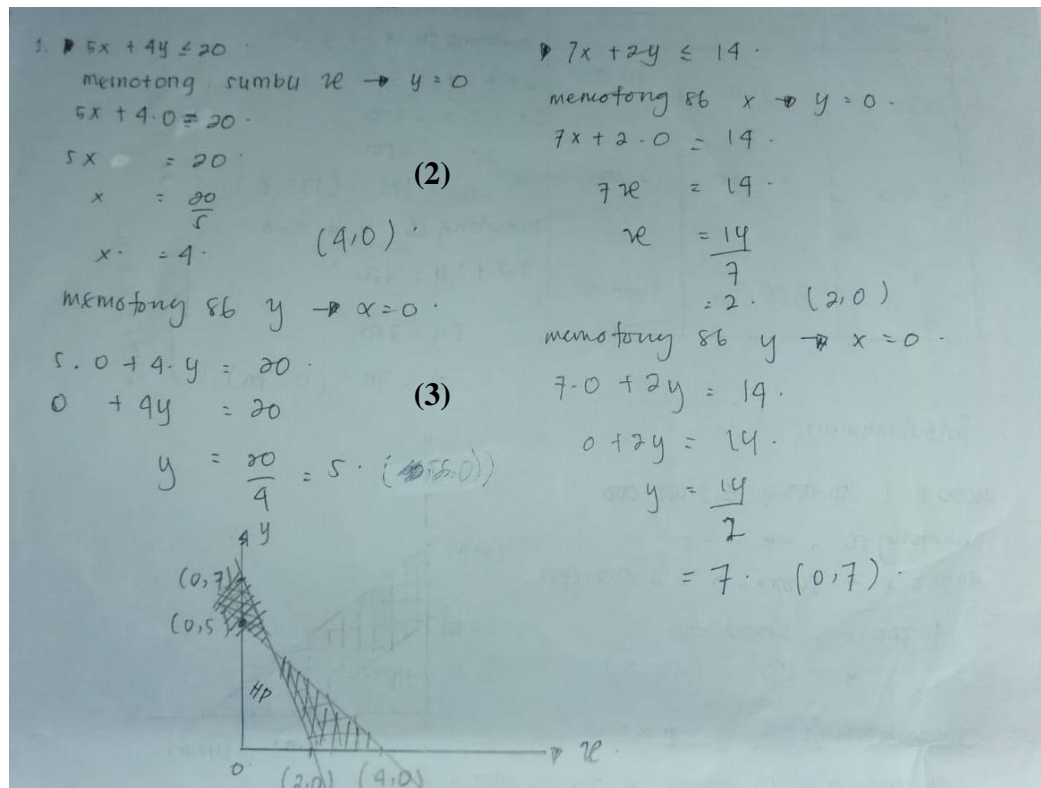 1. 5x + 4y ≤ 20
memotong sumbu x → y = 0
5x + 4.0 = 20
5x = 20
x = 20/5
x = 4. (4,0)
(2)
memotong sb y → x = 0
5.0 + 4.y = 20
0 + 4y = 20
(3)
y = 20/4 = 5.
7x + 2y ≤ 14.
memotong sb x → y = 0.
7x + 2.0 = 14.
7x = 14.
x = 14/7
= 2. (2,0)
memotong sb y → x = 0.
7.0 + 2y = 14.
0 + 2y = 14.
y = 14/2
= 7. (0,7).
y
(0,7)
(0,5)
HP
0
(2,0) (4,0)
x